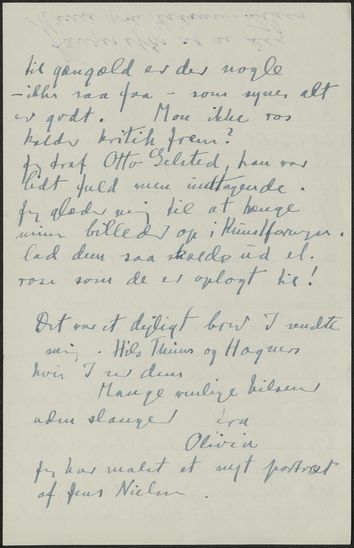 til gengæld er der nogle
- ikke saa faa - som synes alt
er godt. Mon ikke ros
kalder kritik frem?
Jeg traf Otto Gelsted, han var
lidt fuld men indtagende.
Jeg glæder mig til at hænge
mine billeder op i Kunstforeningen.
lad dem saa skælde ud el.
rose som de er oplagt til!
Det var et dejligt brev I sendte
mig. Hils Thiuus og Hagners
hvis I ser dem
Mange venlige hilsner
uden slanger fra
Olivia
Jeg har malet et nyt portræt
af Jens Nielsen.